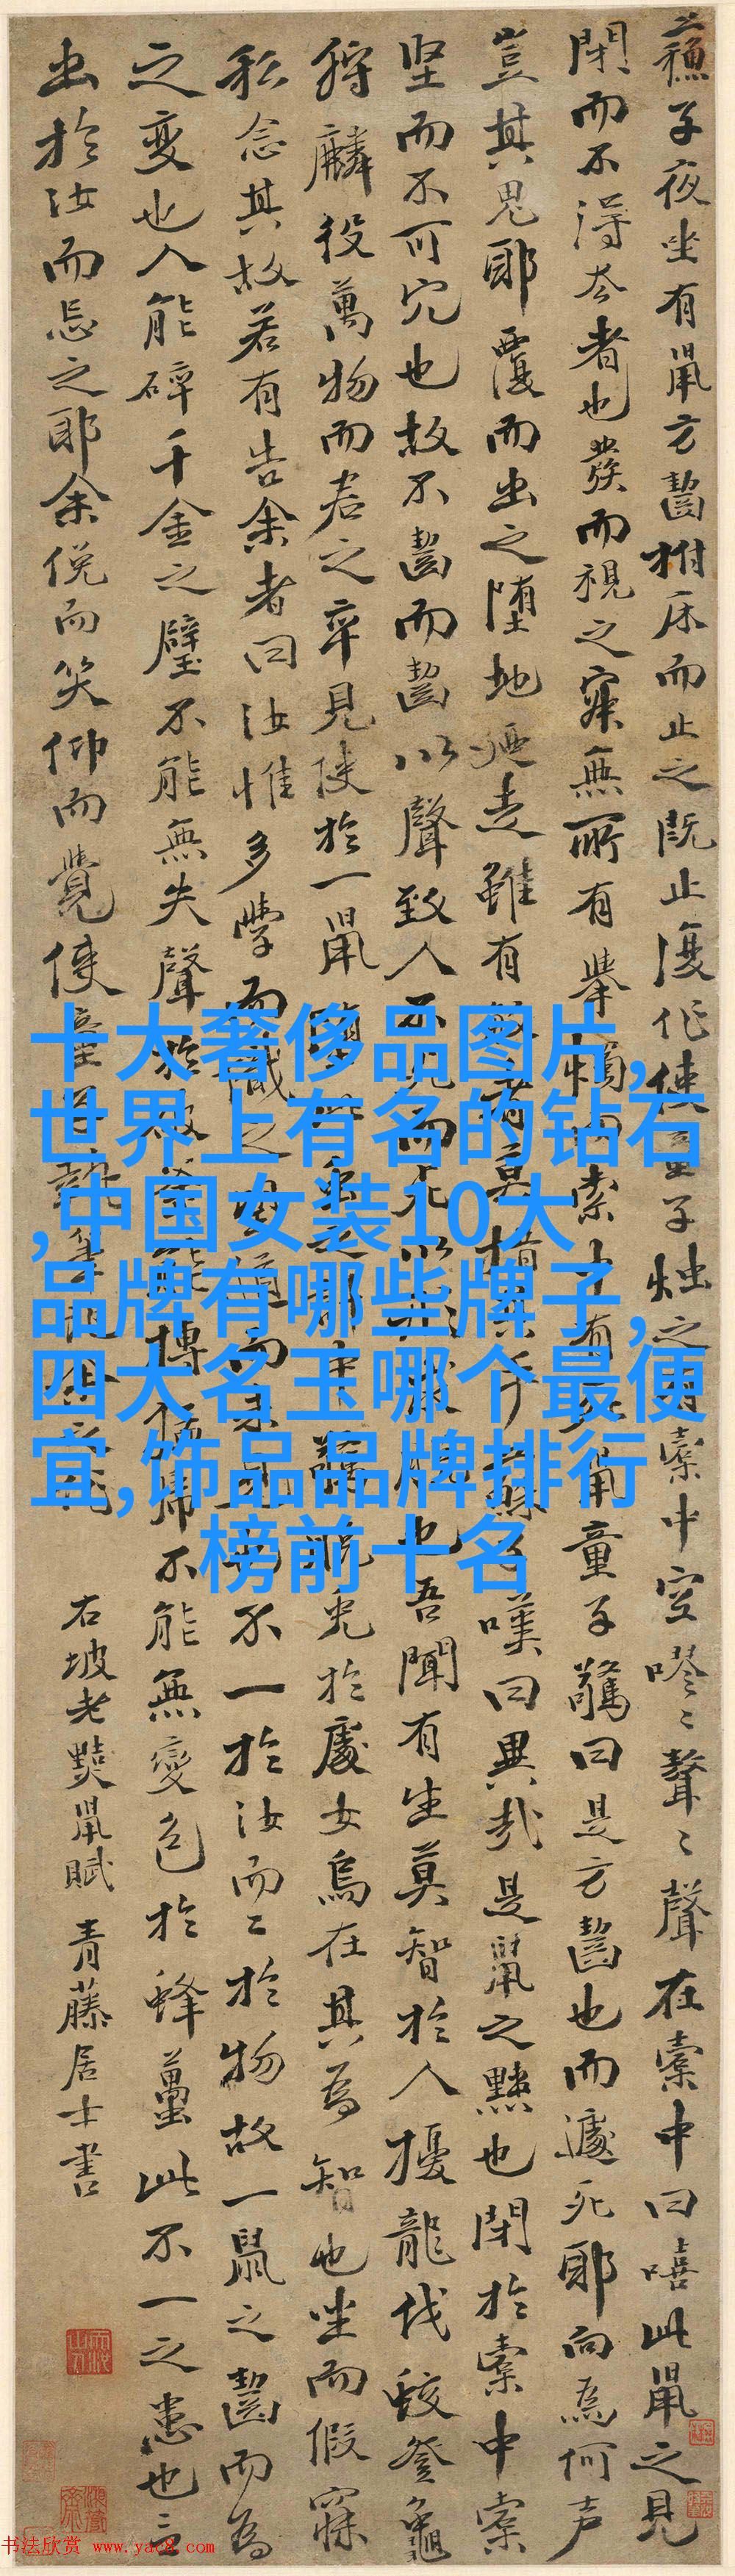 蘇子夜坐有鼠方齧拊床而止之既止復作使童子烛之有橐中空嘐〻聱〻聲在橐中曰嘻此鼠之見
閉而不得去者也發而視之寂無所有舉燭而索中有死鼠童子驚曰是方齧也而遽死耶向為何声
豈其鬼耶覆而出之墮地廼走雖有敏者莫措其手蘇子嘆曰異哉是鼠之黠也閉於橐中橐
坚而不可穴也故不齧而齧以聲致人不死而死以形求脫也吾聞有生莫智於人擾龍伐蛟登龜
狩麟役萬物而君之卒見使於一鼠墮此蟲之計中驚脫兔於處女烏在其為智也坐而假寐
私念其故若有告余者曰汝惟多學而識之望道而未見也不一於汝而二於物故一鼠之齧而為
之變也人能碎千金之璧不能無失聲於破釜能搏猛虎不能無變色於蜂蠆此不一之患也言
出於汝而忘之耶余俛而笑仰而覺使童子執筆記余之
右坡老黠鼠賦 青藤居士書
十大奢侈品图片,
世界上有名的钻石
,中国女装10大
品牌有哪些牌子,
四大名玉哪个最便
宜,饰品品牌排行
榜前十名
书法欣赏 www.yac8.com